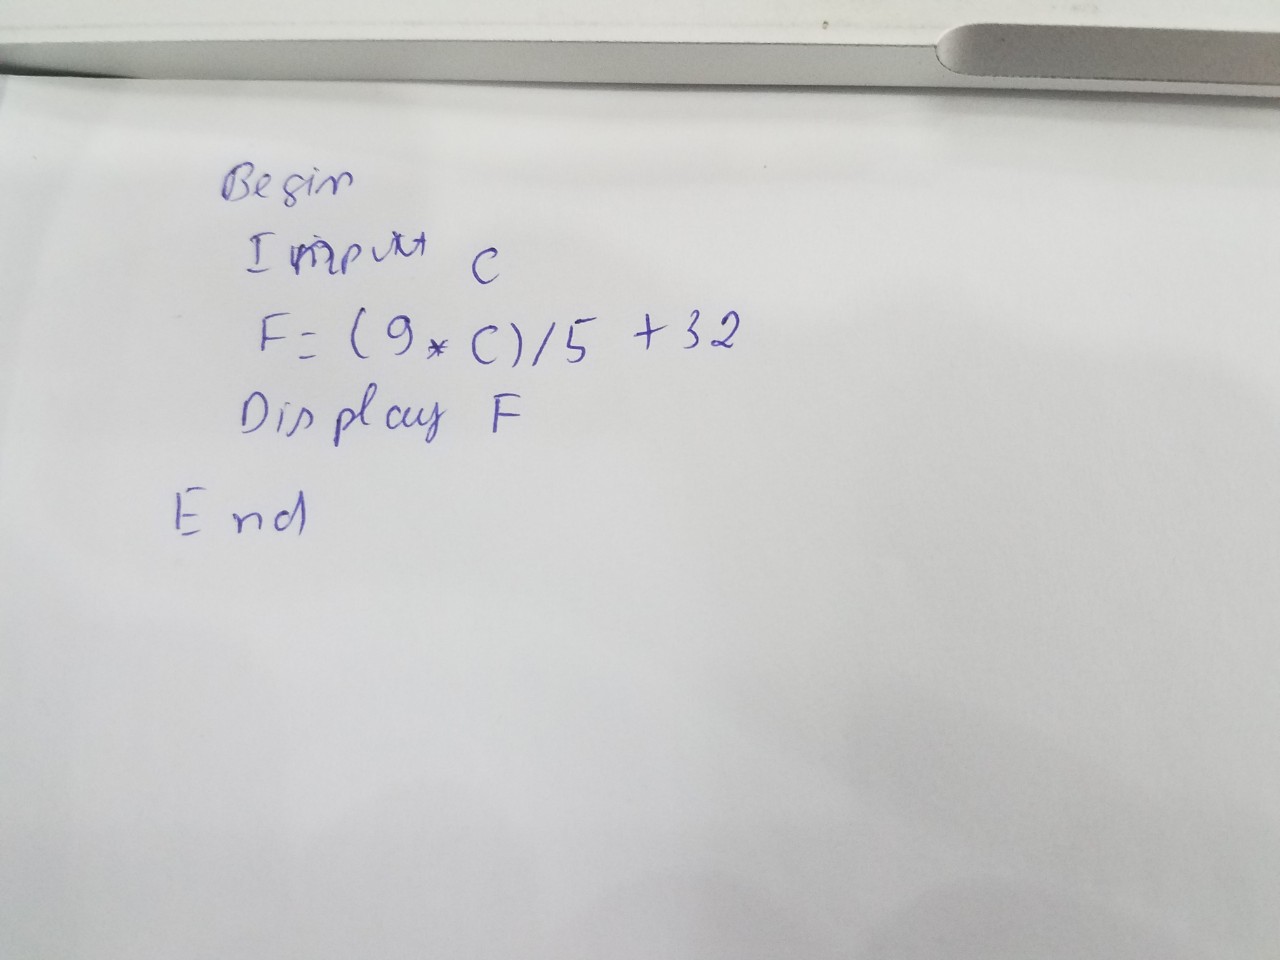 Begin
Input C
F = (9 * C) / 5 + 32
Display F
End